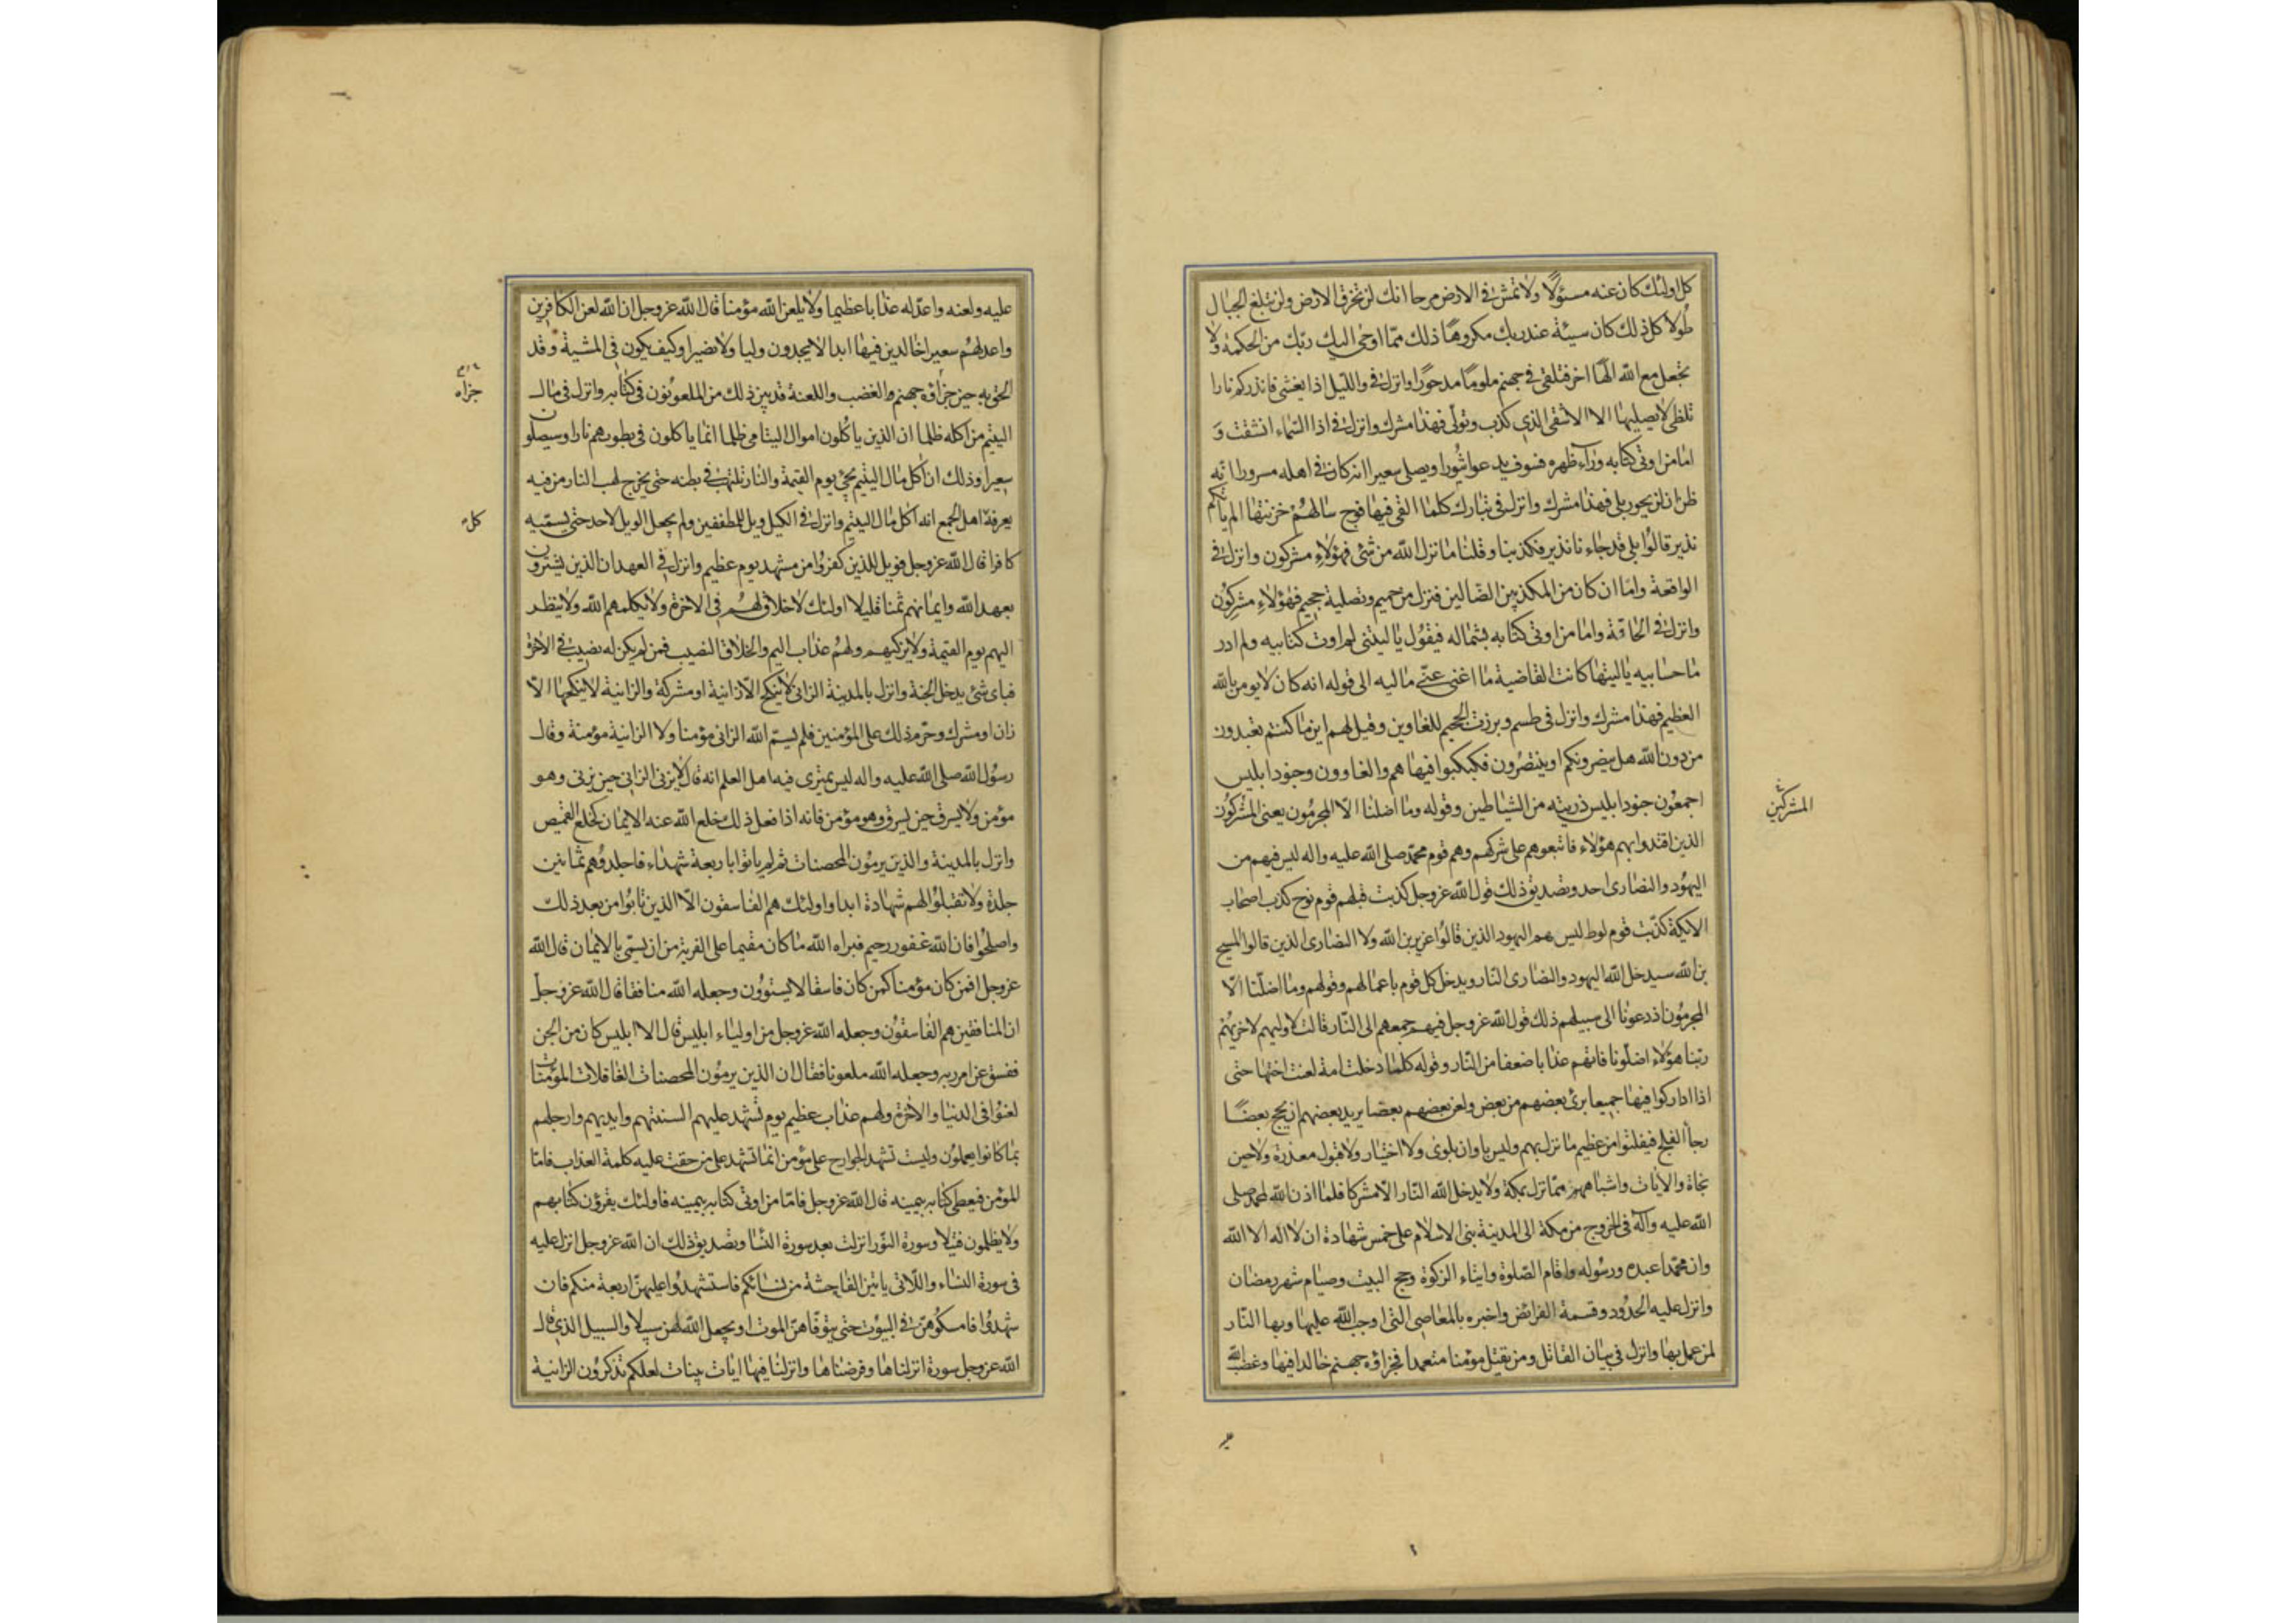 كل اولئك كان عنه مسئولا ولا تمش في الارض مرحا انك لن تخرق الارض ولن تبلغ الجبال
طولا كل ذلك كان سيئة عند ربك مكروها ذلك مما اوحى اليك ربك من الحكمة ولا
تجعل مع الله الها اخر فتلقى في جهنم ملوما مدحورا وانزل في والليل اذا يغشى فانذركم نارا
تلظى لا يصليها الا الاشقى الذي كذب وتولى فهذا مشرك وانزل في اذا السماء انشقت و
اما من اوتى كتابه وراء ظهره فسوف يدعوا ثبورا ويصلى سعيرا انه كان في اهله مسرورا انه
ظن ان لن يحور بلى فهذا مشرك وانزل في تبارك كلما القى فيها فوج سالهم خزنتها الم ياتكم
نذير قالوا بلى قد جاءنا نذير فكذبنا وقلنا ما نزل الله من شئ فهؤلاء مشركون وانزل في
الواقعة واما ان كان من المكذبين الضالين فنزل من حميم وتصلية جحيم فهؤلاء مشركون
وانزل في الحاقة واما من اوتى كتابه بشماله فيقول يا ليتنى لم اوت كتابيه ولم ادر
ما حسابيه يا ليتها كانت القاضية ما اغنى عنى ماليه الى قوله انه كان لا يومن بالله
العظيم فهذا مشرك وانزل في طسم وبرزت الجحيم للغاوين وقيل لهم اين ما كنتم تعبدون
من دون الله هل ينصرونكم او ينتصرون فكبكبوا فيها هم والغاوون وجنود ابليس
اجمعون جنود ابليس ذريته من الشياطين وقوله وما اضلنا الا المجرمون يعنى المشركون
المشركين
الذين اقتدوا بهم هؤلاء فاتبعوهم على شركهم وهم قوم محمد صلى الله عليه واله ليس فيهم من
اليهود والنصارى احد وتصديق ذلك قول الله عز وجل كذبت قبلهم قوم نوح كذب اصحاب
الايكة كذبت قوم لوط ليس هم اليهود الذين قالوا عزير بن الله ولا النصارى الذين قالوا المسيح
بن الله سيدخل الله اليهود والنصارى النار ويدخل كل قوم باعمالهم وقولهم وما اضلنا الا
المجرمون اذ دعونا الى سبيلهم ذلك قول الله عز وجل فيهم جمعهم الى النار قالت لاوليهم لاخريهم
ربنا هؤلاء اضلونا فاتهم عذابا ضعفا من النار وقوله كلما دخلت امة لعنت اختها حتى
اذا اداركوا فيها جميعا برئ بعضهم من بعض ولعن بعضهم بعضا يريد بعضهم ان يحج بعضا
رجأ الفلج فيفلتوا من عظيم ما نزل بهم وليس باوان بلوى ولا اختبار ولا قبول معذرة ولاحين
نجاة والايات واشباههن مما نزل بمكة ولا يدخل الله النار الا مشركا فلما اذن الله لمحمد صلى
الله عليه وآله في الخروج من مكة الى المدينة بنى الاسلام على خمس شهادة ان لا اله الا الله
وان محمدا عبده ورسوله واقام الصلوة وايتاء الزكوة وحج البيت وصيام شهر رمضان
وانزل عليه الحدود وقسمة الفرائض واخبره بالمعاصى التى اوجب الله عليها وبها النار
لمن عمل بها وانزل في بيان القاتل ومن يقتل مؤمنا متعمدا فجزاؤه جهنم خالدا فيها وغضب الله
عليه ولعنه واعد له عذابا عظيما ولا يلعن الله مؤمنا قال الله عز وجل ان الله لعن الكافرين
واعد لهم سعيرا خالدين فيها ابدا لا يجدون وليا ولا نصيرا وكيف يكون في المشية وقد
الحق به حين جزاؤه جهنم والغضب واللعنة قد بين ذلك من الملعونون في كتابه وانزل في مال
جزاه
اليتيم من اكله ظلما ان الذين ياكلون اموال اليتامى ظلما انما ياكلون في بطونهم نارا وسيصلون
سعيرا وذلك ان اكل مال اليتيم يجئ يوم القيمة والنار تلتهب في بطنه حتى يخرج لهب النار من فيه
يعرفه اهل الجمع انه اكل مال اليتيم وانزل في الكيل ويل للمطففين ولم يجعل الويل لاحد حتى يسميه
كل
كافرا قال الله عز وجل فويل للذين كفروا من مشهد يوم عظيم وانزل في العهد ان الذين يشترون
بعهد الله وايمانهم ثمنا قليلا اولئك لاخلاق لهم في الاخرة ولا يكلمهم الله ولا ينظر
اليهم يوم القيمة ولا يزكيهم ولهم عذاب اليم والخلاق النصيب فمن لم يكن له نصيب في الاخرة
فباى شئ يدخل الجنة وانزل بالمدينة الزانى لا ينكح الا زانية او مشركة والزانية لا ينكحها الا
زان او مشرك وحرم ذلك على المؤمنين فلم يسم الله الزانى مؤمنا ولا الزانية مؤمنة وقال
رسول الله صلى الله عليه واله ليس يمترى فيه اهل العلم انه قال لا يزنى الزانى حين يزنى وهو
مؤمن ولا يسرق حين يسرق وهو مؤمن فانه اذا فعل ذلك خلع الله عنه الايمان كخلع القميص
وانزل بالمدينة والذين يرمون المحصنات ثم لم ياتوا باربعة شهداء فاجلدوهم ثمانين
جلدة ولا تقبلوا لهم شهادة ابدا واولئك هم الفاسقون الا الذين تابوا من بعد ذلك
واصلحوا فان الله غفور رحيم فبراه الله ما كان مقيما على الفرية من ان يسمى بالايمان قال الله
عز وجل افمن كان مؤمنا كمن كان فاسقا لا يستوون وجعله الله منافقا قال الله عز وجل
ان المنافقين هم الفاسقون وجعله الله عز وجل من اولياء ابليس قال الا ابليس كان من الجن
ففسق عن امر ربه وجعله الله ملعونا فقال ان الذين يرمون المحصنات الغافلات المؤمنات
لعنوا في الدنيا والاخرة ولهم عذاب عظيم يوم تشهد عليهم السنتهم وايديهم وارجلهم
بما كانوا يعملون وليست تشهد الجوارح على مؤمن انما تشهد على من حقت عليه كلمة العذاب فاما
المؤمن فيعطى كتابه بيمينه قال الله عز وجل فاما من اوتى كتابه بيمينه فاولئك يقرؤن كتابهم
ولا يظلمون فتيلا وسورة النور انزلت بعد سورة النسا وتصديق ذلك ان الله عز وجل انزل عليه
في سورة النساء واللاتى ياتين الفاحشة من نسائكم فاستشهدوا عليهن اربعة منكم فان
شهدوا فامسكوهن في البيوت حتى يتوفاهن الموت او يجعل الله لهن سبيلا والسبيل الذي قال
الله عز وجل سورة انزلناها وفرضناها وانزلنا فيها ايات بينات لعلكم تذكرون الزانية